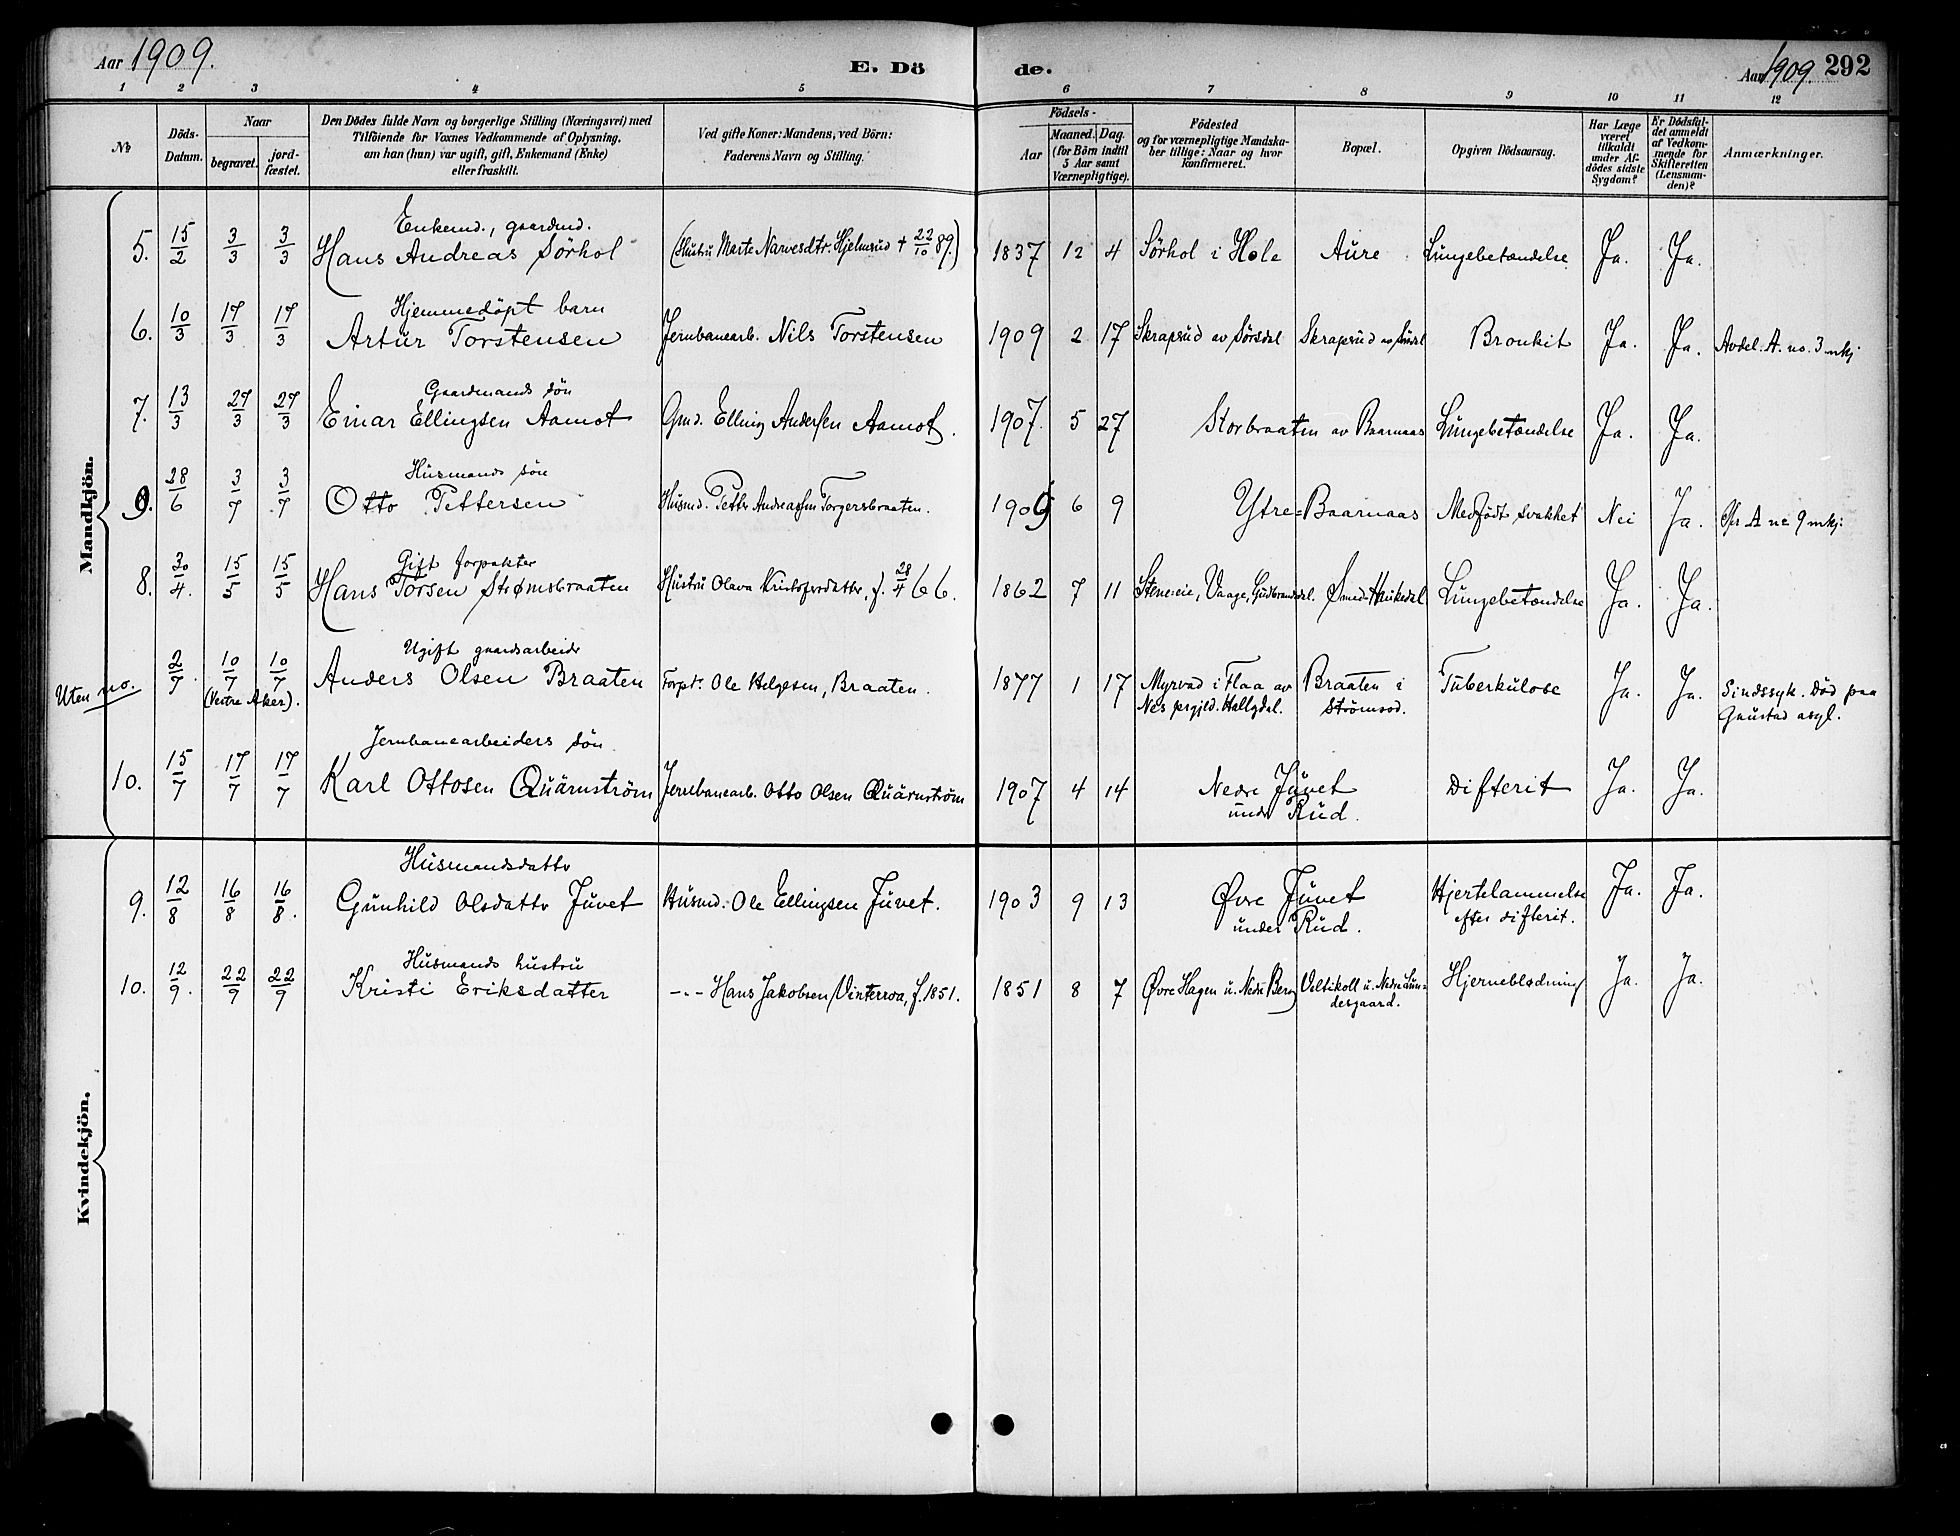 Aar 1909. E. Dö de. Aar 1909. 292
1 2 3 4 5 6 7 8 9 10 11 12
№
Döds-Datum.
Naar
begravet.
jord-fæstet.
Den Dödes fulde Navn og borgerlige Stilling (Næringsvei) med
Tilföiende for Voxnes Vedkommende af Oplysning,
om han (hun) var ugift, gift, Enkemand (Enke)
eller fraskilt.
Ved gifte Koner: Mandens, ved Börn:
Faderens Navn og Stilling.
Födsels-
Aar
Maaned. Dag.
(for Börn indtil
5 Aar samt
Værnepligtige).
Födested
og for værnepligtige Mandska-
ber tillige: Naar og hvor
konfirmeret.
Bopæl.
Opgiven Dödsaarsag.
Har Læge
været
tilkaldt
under Af-
dödes sidste
Sygdom?
Er Dödsfal-
det anmeldt
af Vedkom-
mende for
Skifteretten
(Lensman-
den)?
Anmærkninger.
Mandkjön.
Enkemd., gaardmd.
5. 15/2 3/3 3/3 Hans Andreas Sörhol (Hustru Marte Narvesdtr. Hjelmrud + 22/10 89.) 1837 12 4 Sörhol i Hole Aure Lungebetændelse Ja. Ja.
Hjemmedöpt barn
6. 10/3 17/3 17/3 Artur Torstensen Jernbanearb. Nils Torstensen 1909 2 17 Skrapsud av Sörsdal Skrapsud av Bronkit Ja. Ja. Avdel. A. no. 3 mkj.
Gaardmands sön
7. 13/3 27/3 27/3 Einar Ellingsen Aamot Gmd. Elling Andersen Aamot. 1907. 5 27 Storbraaten av Baarnaas Lungebetændelse Ja. Ja.
Husmands sön
9. 28/6 3/7 3/7 Otto Pettersen Husmd. Petter Andreassen Torgersbraaten. 1909 6 9 Ytre-Baarnaas Medfödt svakhet Nei Ja. A no 9 mkj:
Gift forpakter
8. 30/4. 15/5 15/5 Hans Torsen Strømsbraaten Hustru Olava Kristofersdatter, f. 28/4 66. 1862 7 11 Steneeie, Vaage, Gudbrandsdal. Lungebetændelse Ja. Ja.
Ugift gaardsarbeider
Uten no. 2/7. 10/7 10/7 Anders Olsen Braaten Forptr. Ole Helgesen, Braaten. 1877 1 17 Myrvad i Flaa av Braaten i Tuberkulose Ja. Ja. Sindssyk. Död paa
(Vestre Aker). Nes prgjld. Hallgdal. Strömsod. Gaustad asyl.
Jernbanearbeiders sön
10. 15/7 17/7 17/7 Karl Ottosen Quärnström Jernbanearb. Otto Olsen Quärnström 1907 4 14 Nedre Juvet Difterit Ja. Ja.
under Rud.
Kvindekjön.
Husmandsdatter
9. 12/8 16/8 16/8. Gunhild Olsdatter Juvet Husmd. Ole Ellingsen Juvet. 1903 9 13 Øvre Juvet Hjertelammelse Ja. Ja.
under Rud. efter difterit.
Husmands hustru
10. 12/9. 22/9 22/9 Kristi Eriksdatter -"- Hans Jakobsen Vinterroa, f. 1851. 1851 8 7 Øvre Hagen u. Nedre Berg Veltikoll u. Nedre Lun- Hjerneblødning Ja. Ja.
desgaard.